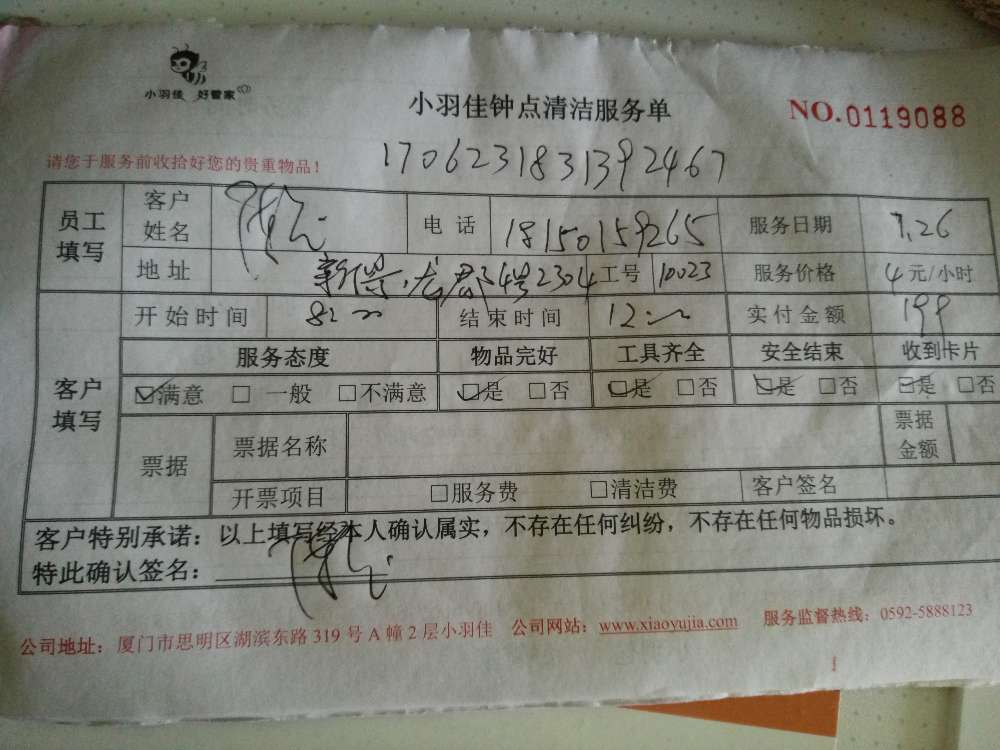 小羽佳 好管家
小羽佳钟点清洁服务单
NO.0119088
请您于服务前收拾好您的贵重物品！
1706231831392467
员工填写 客户姓名 电话 18150159265 服务日期 7.26
地址 龙郡4号2304 工号 10023 服务价格 4元/小时
客户填写 开始时间 8: 结束时间 12: 实付金额 199
服务态度 物品完好 工具齐全 安全结束 收到卡片
☑满意 □一般 □不满意 ☑是 □否 ☑是 □否 ☑是 □否 ☑是 □否
票据 票据名称 票据金额
开票项目 □服务费 □清洁费 客户签名
客户特别承诺：以上填写经本人确认属实，不存在任何纠纷，不存在任何物品损坏。
特此确认签名：
公司地址：厦门市思明区湖滨东路319号A幢2层小羽佳 公司网站：www.xiaoyujia.com 服务监督热线：0592-5888123